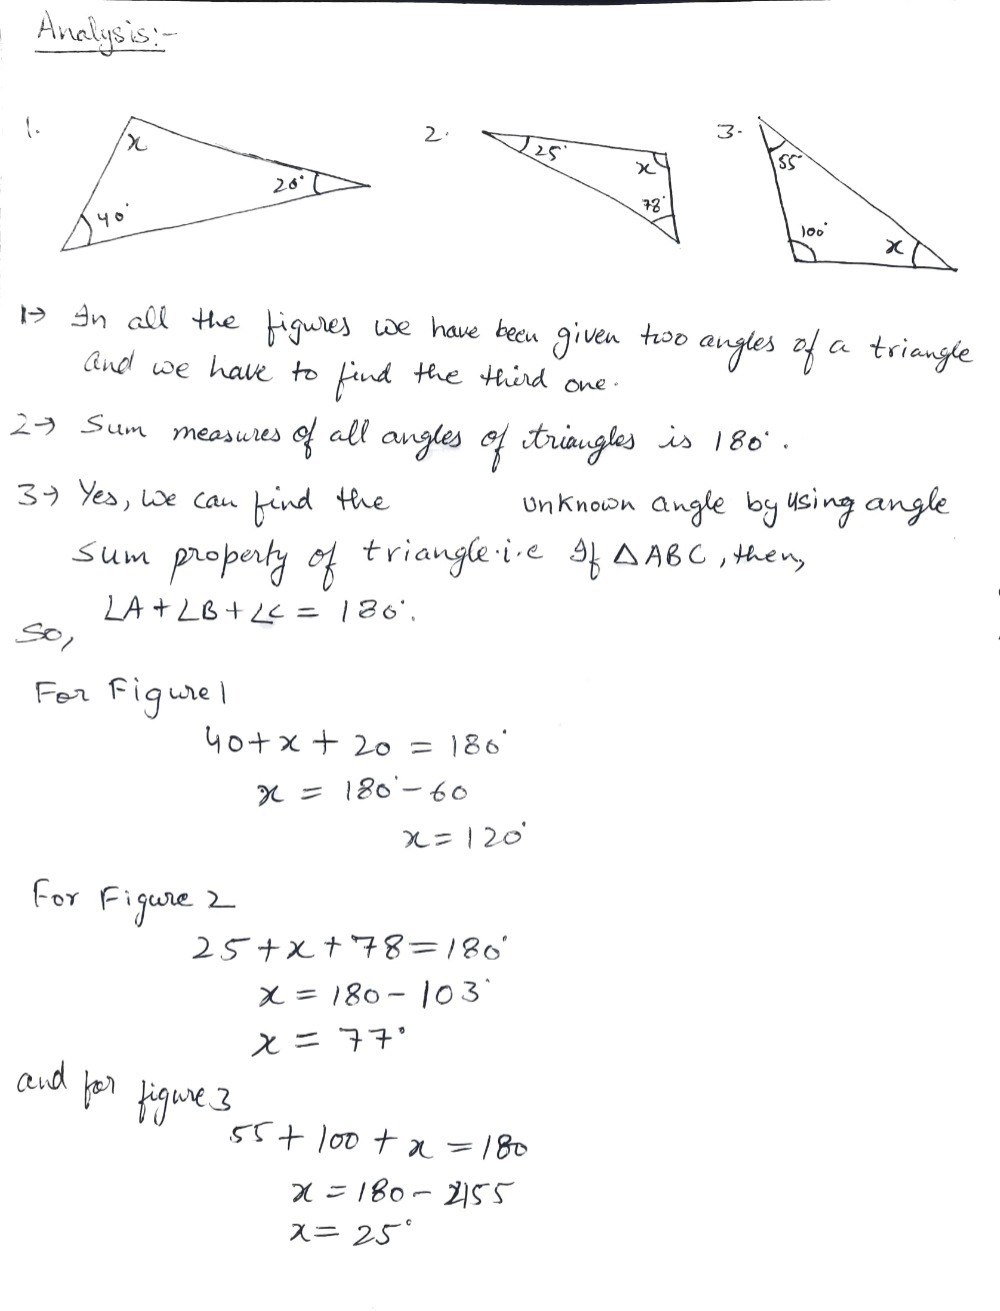 Analysis:-
1.
x
20°
40°
2.
25°
x
78°
3.
55
100°
x
1→ In all the figures we have been given two angles of a triangle
and we have to find the third one.
2→ Sum measures of all angles of triangles is 180°.
3→ Yes, we can find the unknown angle by using angle
sum property of triangle.i.e If △ABC, then,
∠A+∠B+∠C = 180°.
So,
For Figure 1
40+x+20 = 180°
x = 180°-60
x=120°
For Figure 2
25+x+78=180°
x = 180-103°
x = 77°
and for figure 3
55+100+x=180
x=180-155
x=25°